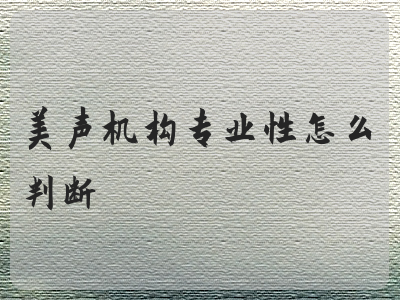 美声机构专业性怎么
判断